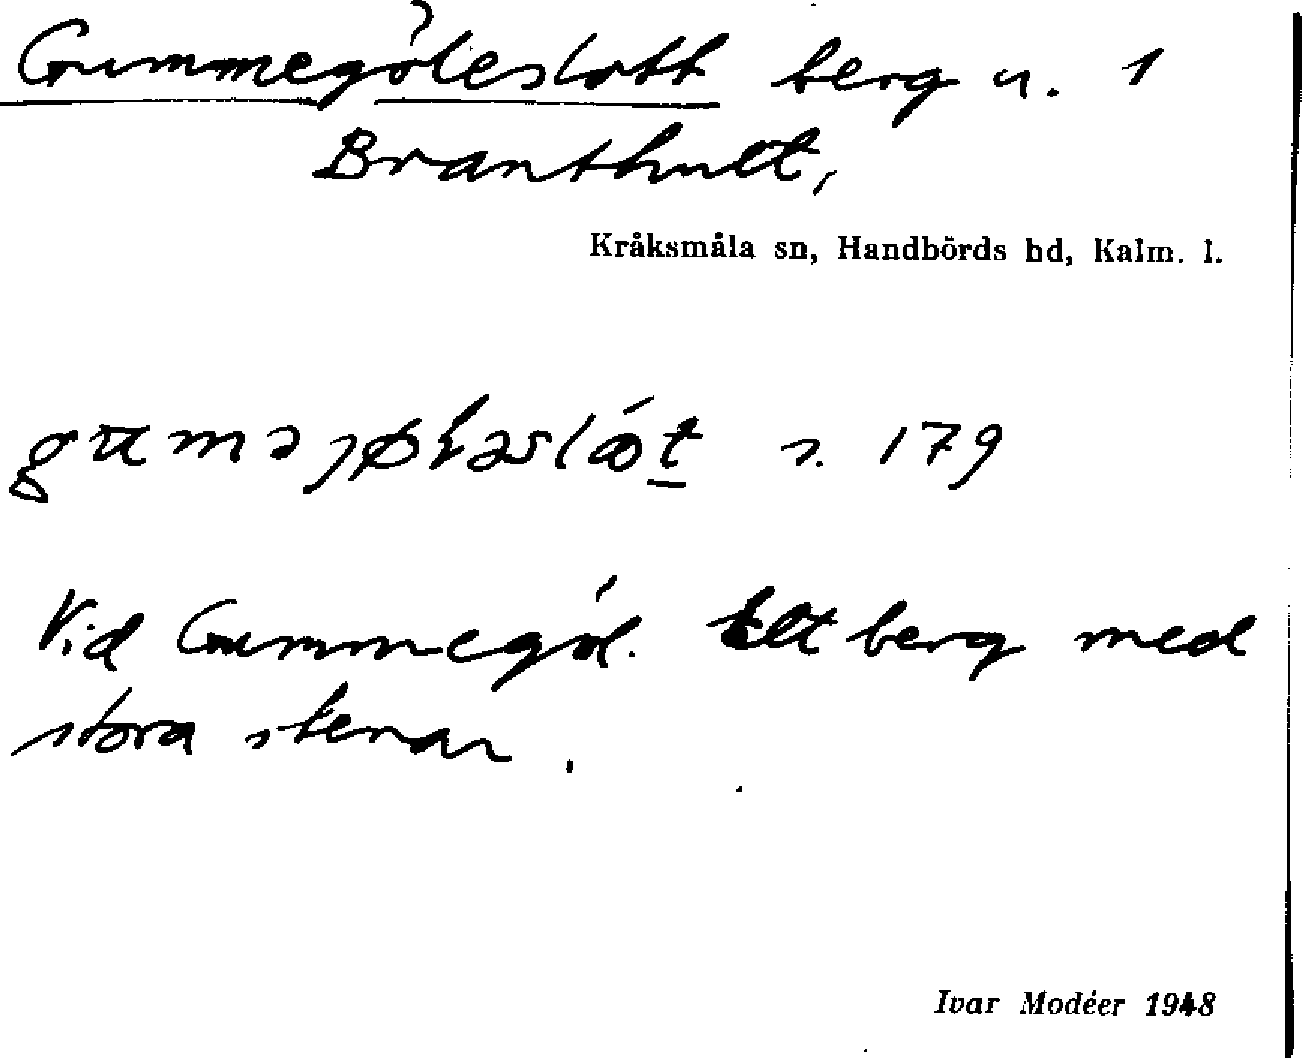 Gummegöleslott berg u. 1
Branthult,
Kråksmåla sn, Handbörds hd, Kalm. l.
s. 179
Vid Gummegöl. Ett berg med
stora stenar.
Ivar Modéer 1948